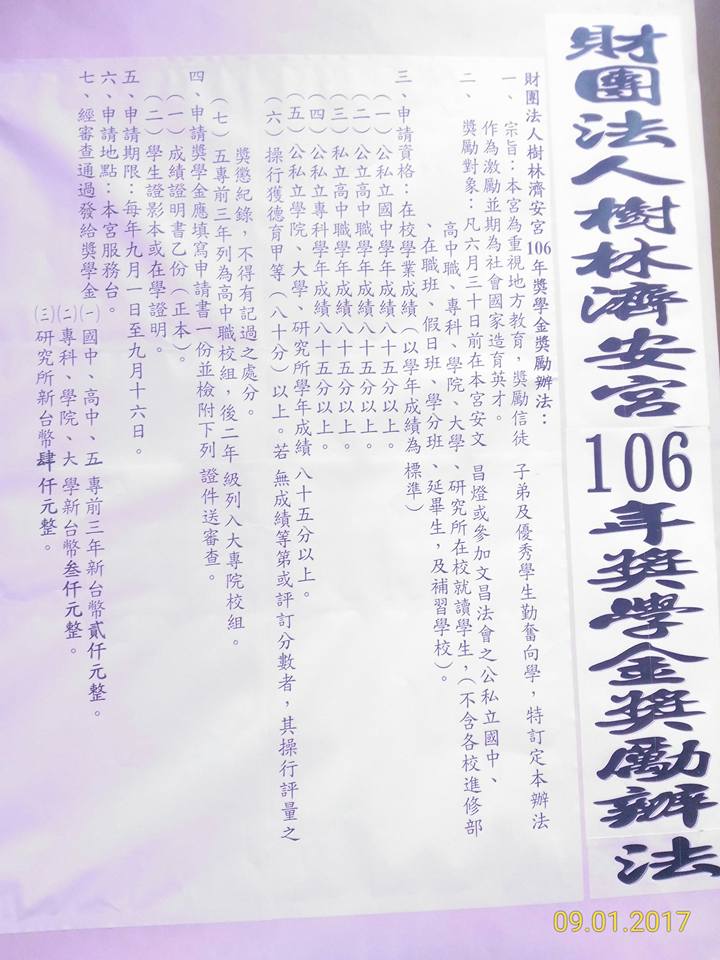 財團法人樹林濟安宮106年獎學金獎勵辦法
財團法人樹林濟安宮106年獎學金獎勵辦法：
一、宗旨：本宮為重視地方教育，獎勵信徒子弟及優秀學生勤奮向學，特訂定本辦法
作為激勵並期為社會國家造育英才。
二、獎勵對象：凡六月三十日前在本宮安文昌燈或參加文昌法會之公私立國中、
高中職、專科、學院、大學、研究所在校就讀學生，(不含各校進修部
、在職班、假日班、學分班、延畢生，及補習學校)。
三、申請資格：在校學業成績(以學年成績為標準)
(一)公私立國中學年成績八十五分以上。
(二)公立高中職學年成績八十五分以上。
(三)私立高中職學年成績八十五分以上。
(四)公私立專科學年成績八十五分以上。
(五)公私立學院、大學、研究所學年成績八十五分以上。
(六)操行獲德育甲等(八十分)以上。若無成績等第或評訂分數者，其操行評量之
獎懲紀錄，不得有記過之處分。
(七)五專前三年列為高中職校組，後二年級列入大專院校組。
四、申請獎學金應填寫申請書一份並檢附下列證件送審查。
(一)成績證明書乙份(正本)。
(二)學生證影本或在學證明。
五、申請期限：每年九月一日至九月十六日。
六、申請地點：本宮服務台。
七、經審查通過發給獎學金
㈠國中、高中、五專前三年新台幣貳仟元整。
㈡專科、學院、大學新台幣叁仟元整。
㈢研究所新台幣肆仟元整。
09.01.2017